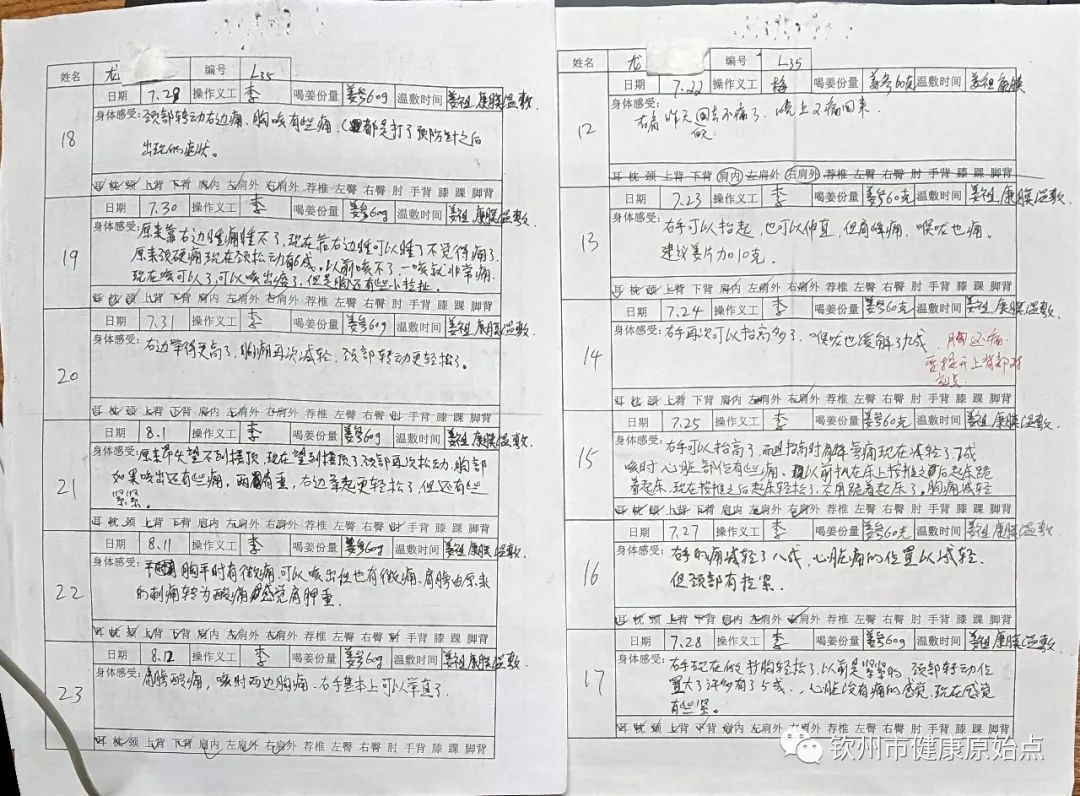 姓名 龙 编号 L35
日期 7.28 操作义工 李 喝姜份量 姜参60g 温敷时间 姜祖.康膜温敷.
18
身体感受: 颈部转动右边痛、胸咳有些痛、(都是打了预防针之后
出现的症状。
耳 枕 颈 上背 下背 肩内 左肩外 右肩外 荐椎 左臀 右臀 肘 手背 膝 踝 脚背
日期 7.30 操作义工 李 喝姜份量 姜参60g 温敷时间 姜祖.康膜温敷.
19
身体感受: 原来靠右边睡痛睡不了,现在靠右边睡可以睡了不觉得痛了.
原来颈硬痛现在颈松动有6成.以前咳不了,一咳就非常痛,
现在咳可以了,可以咳出痰了,但是胸还有些小拉扯.
耳 枕 颈 上背 下背 肩内 左肩外 右肩外 荐椎 左臀 右臀 肘 手背 膝 踝 脚背
日期 7.31 操作义工 李 喝姜份量 姜参60g 温敷时间 姜祖.康膜温敷.
20
身体感受: 右边举得更高了、胸痛再次减轻、颈部转动更轻松了。
耳 枕 颈 上背 下背 肩内 左肩外 右肩外 荐椎 左臀 右臀 肘 手背 膝 踝 脚背
日期 8.1 操作义工 李 喝姜份量 姜参60g 温敷时间 姜祖.康膜温敷.
21
身体感受: 原来望不到楼顶,现在望到楼顶了,颈部再次松动,胸部
如果咳出还有些痛,两肩有重,右边举起更轻松了,但还有些
紧紧。
耳 枕 颈 上背 下背 肩内 左肩外 右肩外 荐椎 左臀 右臀 肘 手背 膝 踝 脚背
日期 8.11 操作义工 李 喝姜份量 姜参60g 温敷时间 姜祖.康膜温敷.
22
身体感受: 胸平时有微痛,可以咳出性也有微痛、肩膀由原来
的刺痛转为酸痛感觉有肿重.
耳 枕 颈 上背 下背 肩内 左肩外 右肩外 荐椎 左臀 右臀 肘 手背 膝 踝 脚背
日期 8.12 操作义工 李 喝姜份量 姜参60g 温敷时间 姜祖.康膜温敷.
23
身体感受: 肩膀酸痛,咳时两边胸痛、右手基本上可以举直了.
耳 枕 颈 上背 下背 肩内 左肩外 右肩外 荐椎 左臀 右臀 肘 手背 膝 踝 脚背
姓名 龙 编号 L35
日期 7.22 操作义工 梅 喝姜份量 姜参60克 温敷时间 姜祖康膜
12
身体感受: 右肩昨天回去不痛了,晚上又痛回来.
耳 枕 颈 上背 下背 肩内 左肩外 右肩外 荐椎 左臀 右臀 肘 手背 膝 踝 脚背
日期 7.23 操作义工 李 喝姜份量 姜参60克 温敷时间 姜祖.康膜温敷.
13
身体感受: 右手可以抬起,也可以伸直,但有痛、喉咙也痛.
建议姜片加10克.
耳 枕 颈 上背 下背 肩内 左肩外 右肩外 荐椎 左臀 右臀 肘 手背 膝 踝 脚背
日期 7.24 操作义工 李 喝姜份量 姜参60克 温敷时间 姜祖.康膜温敷.
14
身体感受: 右手再次可以抬高多了、喉咙也缓解了九成.胸还痛
要按开上背部对
应点.
耳 枕 颈 上背 下背 肩内 左肩外 右肩外 荐椎 左臀 右臀 肘 手背 膝 踝 脚背
日期 7.25 操作义工 李 喝姜份量 姜参60克 温敷时间 姜祖.康膜温敷.
15
身体感受: 右手可以抬高了.而且抬高时痛现在减轻了7成
咳时心脏部位有些痛、以前趴在床上按推之后起床跪
着起床,现在按推之后起床轻松了,不用跪着起床了。胸痛减轻
耳 枕 颈 上背 下背 肩内 左肩外 右肩外 荐椎 左臀 右臀 肘 手背 膝 踝 脚背
日期 7.27 操作义工 李 喝姜份量 姜参60克 温敷时间 姜祖.康膜温敷.
16
身体感受: 右手的痛减轻了八成,心脏痛的位置以成轻.
但颈部有拉紧.
耳 枕 颈 上背 下背 肩内 左肩外 右肩外 荐椎 左臀 右臀 肘 手背 膝 踝 脚背
日期 7.28 操作义工 李 喝姜份量 姜参60g 温敷时间 姜祖.康膜温敷.
17
身体感受: 右手现在做扩胸轻松了,以前是紧紧的,颈部转动位
置大了许多有了5成.,心脏没有痛的感觉,现在感觉
有些紧。
耳 枕 颈 上背 下背 肩内 左肩外 右肩外 荐椎 左臀 右臀 肘 手背 膝 踝 脚背
钦州市健康原始点